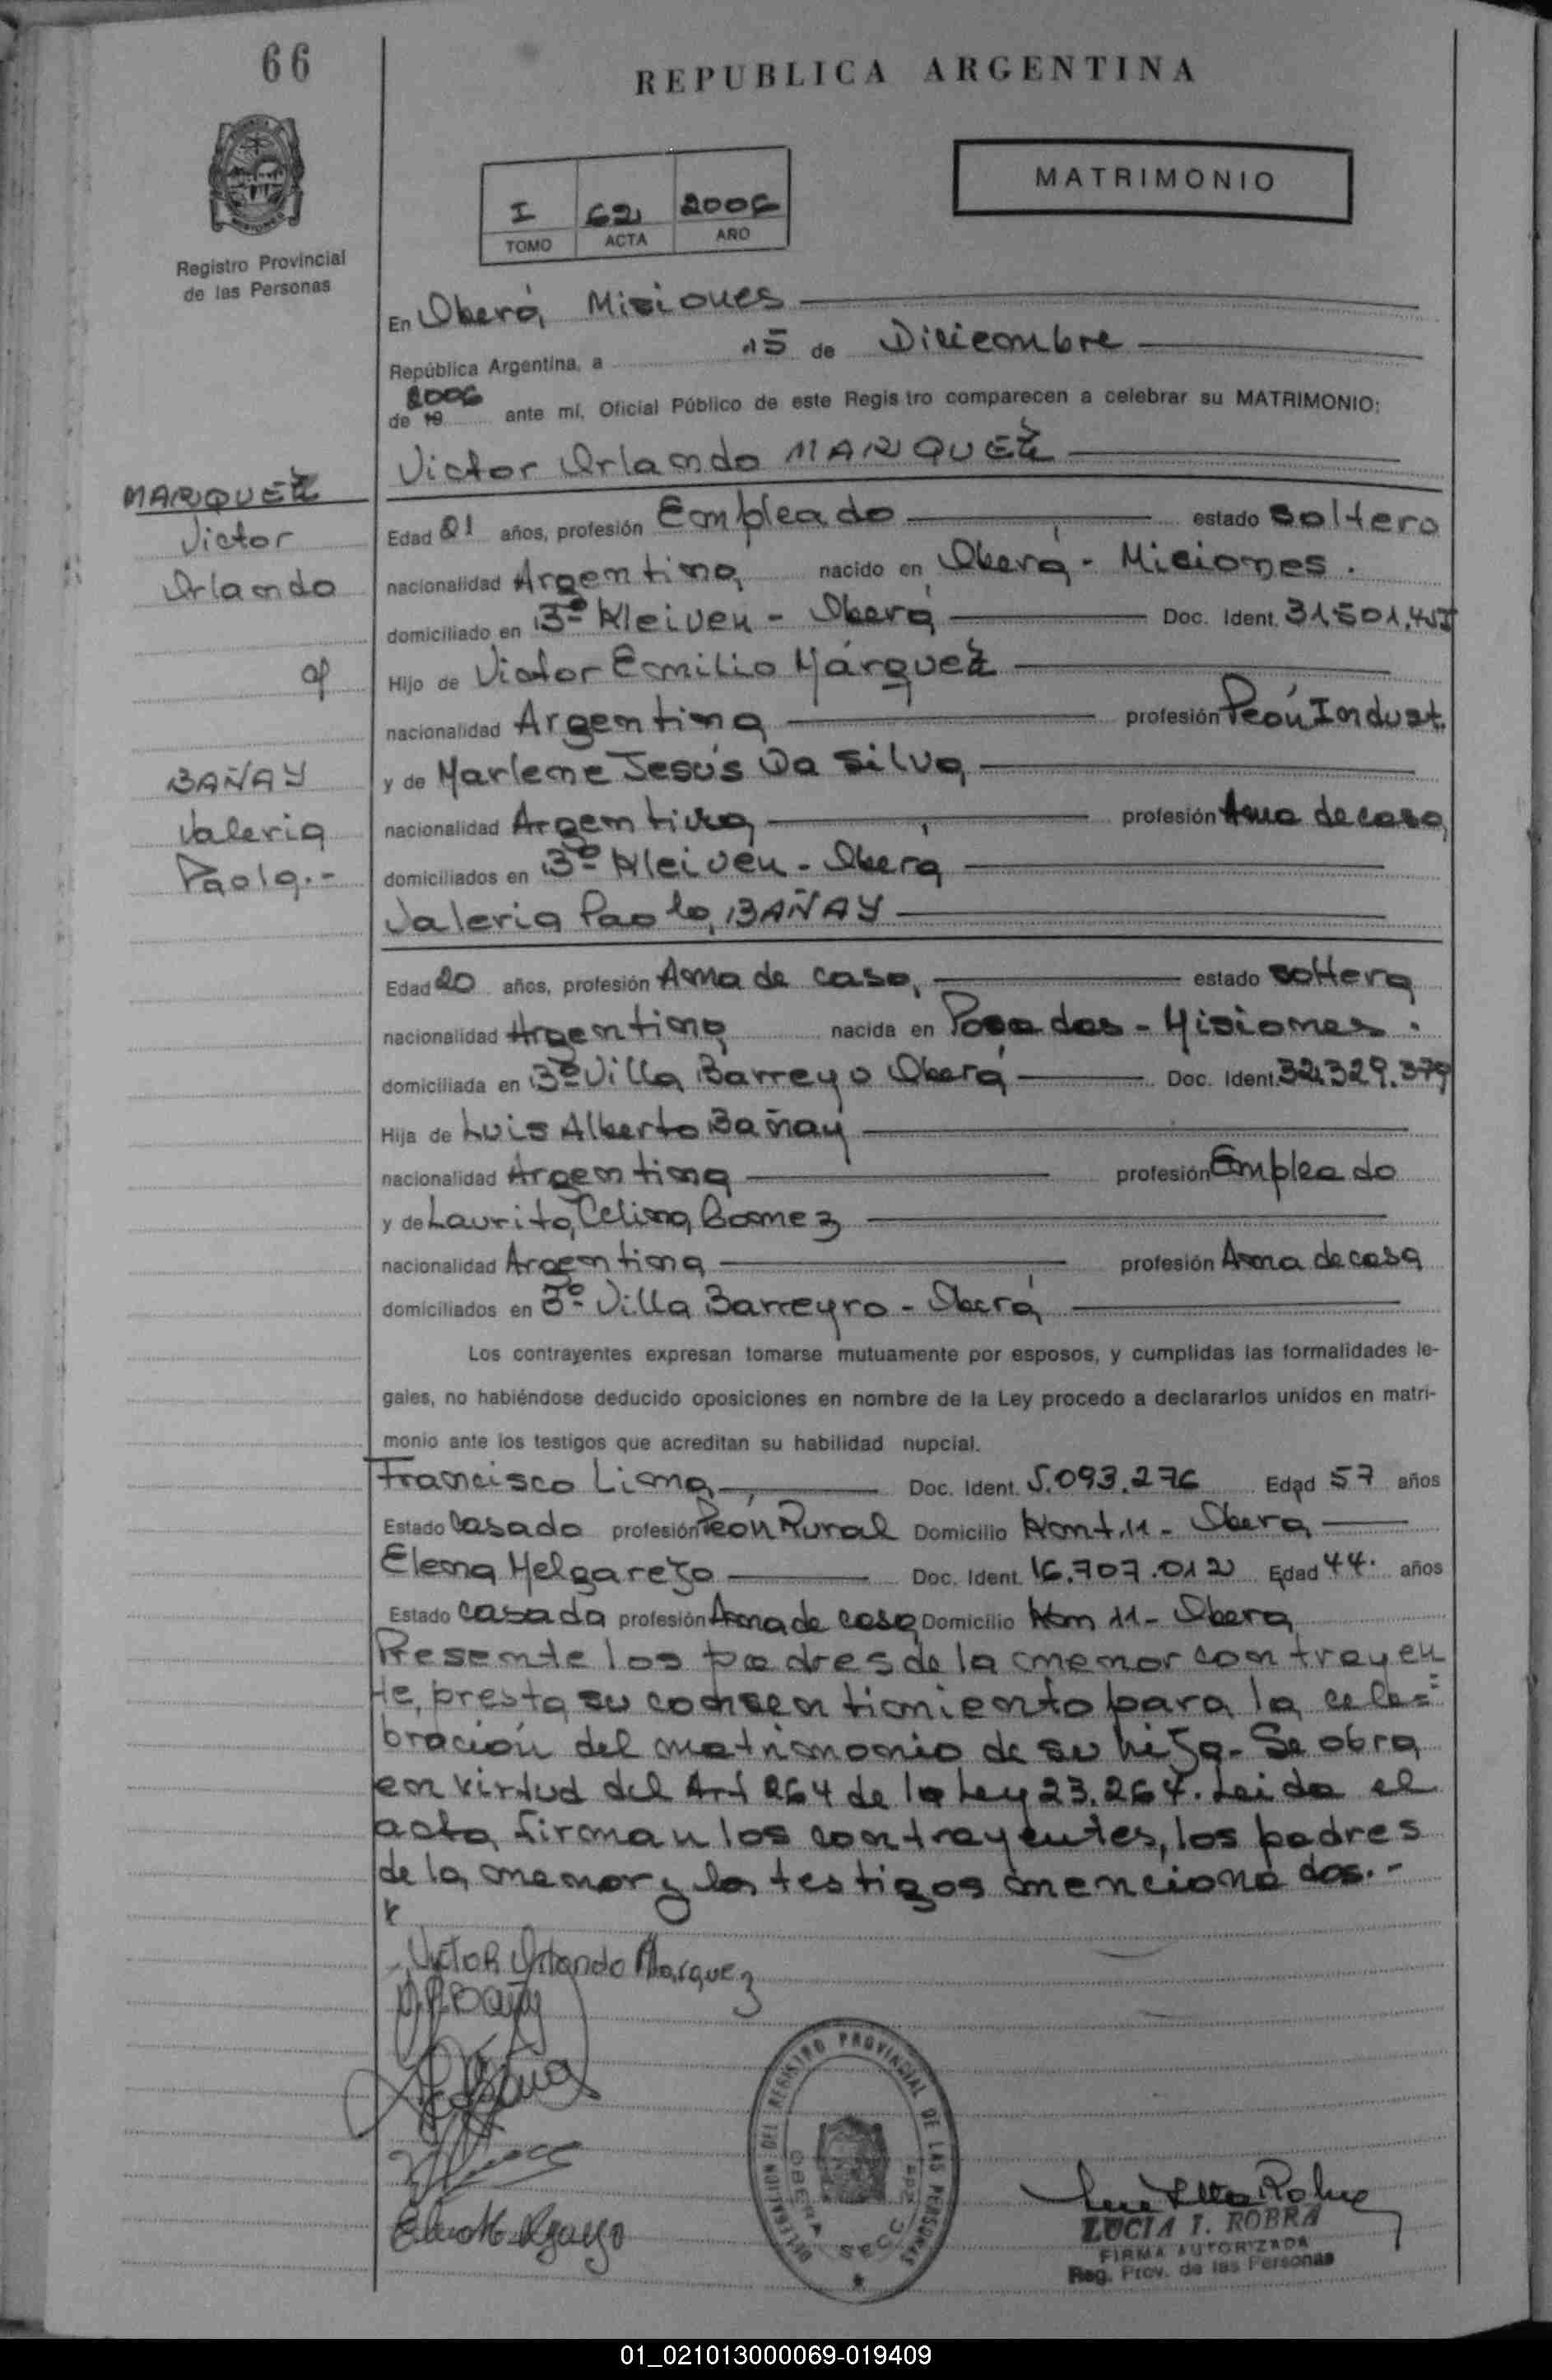 66
REPUBLICA ARGENTINA
MATRIMONIO
I 62 2006
TOMO ACTA AÑO
Registro Provincial
de las Personas
En Oberá, Misiones
República Argentina, a 15 de Diciembre
de 19 2006 ante mí, Oficial Público de este Registro comparecen a celebrar su MATRIMONIO:
Victor Orlando MARQUEZ
MARQUEZ
Victor
Orlando
BAÑAY
Valeria
Paola.-
Edad 21 años, profesión Empleado estado soltero
nacionalidad Argentina nacido en Oberá - Misiones.
domiciliado en Bº Kleiven - Oberá Doc. Ident. 31.501.
Hijo de Victor Emilio Márquez
nacionalidad Argentina profesión Peón Indust.
y de Marlene Jesús Da Silva
nacionalidad Argentina profesión Ama de casa
domiciliados en Bº Kleivén - Oberá
Valeria Paola BAÑAY
Edad 20 años, profesión Ama de casa, estado soltera
nacionalidad Argentina nacida en Posadas - Misiones.
domiciliada en Bº Villa Barreyo Oberá Doc. Ident. 32.329.379
Hija de Luis Alberto Bañay
nacionalidad Argentina profesión Empleado
y de Laurita Celina Gomez
nacionalidad Argentina profesión Ama de casa
domiciliados en Bº Villa Barreyro - Oberá
Los contrayentes expresan tomarse mutuamente por esposos, y cumplidas las formalidades le-
gales, no habiéndose deducido oposiciones en nombre de la Ley procedo a declararlos unidos en matri-
monio ante los testigos que acreditan su habilidad nupcial.
Francisco Lima Doc. Ident. 5.093.276 Edad 57 años
Estado casado profesión Peón Rural Domicilio Km t. 11 - Oberá
Elena Melgarejo Doc. Ident. 16.707.012 Edad 44. años
Estado casada profesión Ama de casa Domicilio Km 11 - Oberá
Presente los padres de la menor contrayen
te, presta su consentimiento para la cele=
bración del matrimonio de su hija.- Se obra
en virtud del Art 264 de la Ley 23.264. Leida el
acta, firman los contrayentes, los padres
de la menor y los testigos mencionados.-
Victor Orlando Marquez
DELEGACION DEL REGISTRO PROVINCIAL DE LAS PERSONAS
OBERA
SECC
LUCIA I. ROBRA
FIRMA AUTORIZADA
Reg. Prov. de las Personas
01_021013000069-019409